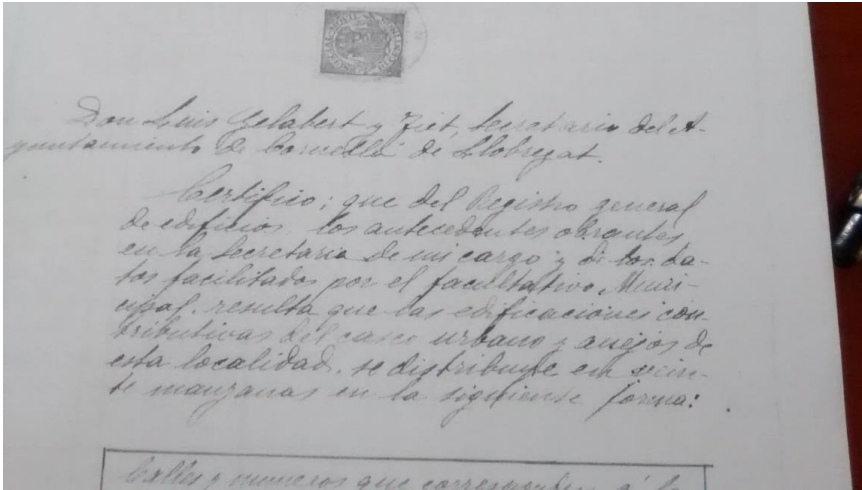 Don Luis Gelabert y Fiet, Secretario del A-
yuntamiento de Cornellá de Llobregat.
Certifico: que del Registro general
de edificios, los antecedentes obrantes
en la Secretaria de mi cargo y de los da-
tos facilitados por el facultativo Muni-
cipal, resulta que las edificaciones con-
tributivas del casco urbano y anejos de
esta localidad, se distribuye en vein-
te manzanas en la siguiente forma:
Calles y numeros que corresponden á la